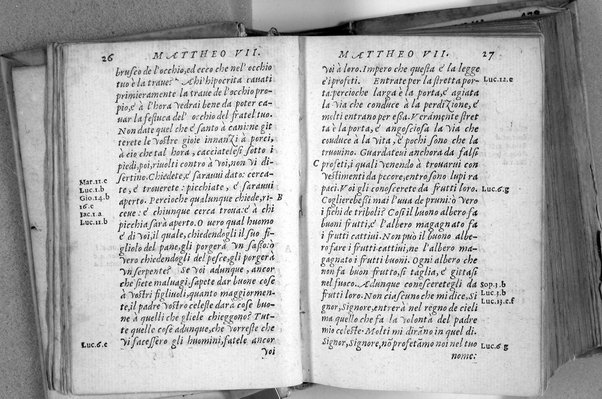 26 MATTHEO VII.
brusco de l'occhio, ed ecco che nel'occhio
tuo è la traue? Ahi hipocrita cauati
primieramente la traue de l'occhio pro-
pio, é à l'hora vedrai bene da poter ca-
uar la festuca del' occhio del fratel tuo.
Non date quel che é santo à cani: ne git
terete le vostre gioie innanzi à porci,
à cio che tal hora, cacciatelesi sotto i
piedi, poi, riuolti contro à voi, non vi di-
sertino. Chiedete, é sarauui dato: cerca-
te, é trouerete: picchiate, é sarauui
aperto. Percioche qualunque chiede, ri-
ceue: é chiunque cerca troua: é à chi
picchia sarà aperto. O uero qual huomo
é di voi, il quale, chiedendogli il suo fi-
gliolo del pane, gli porgerà vn sasso: ò
vero chiedendogli del pesce, gli porgerà
vn serpente? Se voi adunque, ancor
che siete maluagi, sapete dar buone cose
à vostri figliuoli, quanto maggiormen-
te, il padre vostro celeste darà cose buo-
ne à quelli che gliele chieggono? Tut-
te quelle cose adunque, che vorreste che
vi facessero gli huomini, fatele ancor
voi
Mar.11.c
Luc.1.b
Gio.14.b
16.e
Iac.1.a
Luc.11.b
B
Luc.6.e
MATTHEO VII. 27
voi à loro. Impero che questa é la legge
é i profeti. Entrate per la stretta por-
ta: percioche larga è la porta, é agiata
la via che conduce à la perdizione, é
molti entrano per essa. Veramente stret
ta è la porta, é angosciosa la via che
conduce à la vita, é pochi son che la
truouino. Guardateui anchora da falsi
profeti, i quali venendo à trouarui con
vestimenti da pecore, entro sono lupi ra
paci. Voi gli conoscerete da frutti loro.
Coglierebbesi mai l'uua de pruni: ò vero
i fichi de triboli? Cosi il buono albero fa
buoni frutti, é l'albero magagnato fa
i frutti cattiui. Non può il buono albe-
ro fare i frutti cattiui, ne l'albero ma-
gagnato i frutti buoni. Ogni albero che
non fa buon frutto, si taglia, é gittasi
nel fuoco. Adunque conoscerete gli da
frutti loro. Non ciascuno che mi dice, Si
gnor, Signor, entrerà nel regno de cieli
ma quello che fa la volontà del padre
mio celeste. Molti mi diràno in quel di:
Signor, Signore, nõ profetamo noi nel tuo
nome:
Luc.12.e
C
Luc.6.g
Sop.3.b
Luc.3.b
Luc.13.e.f
Luc.6.g